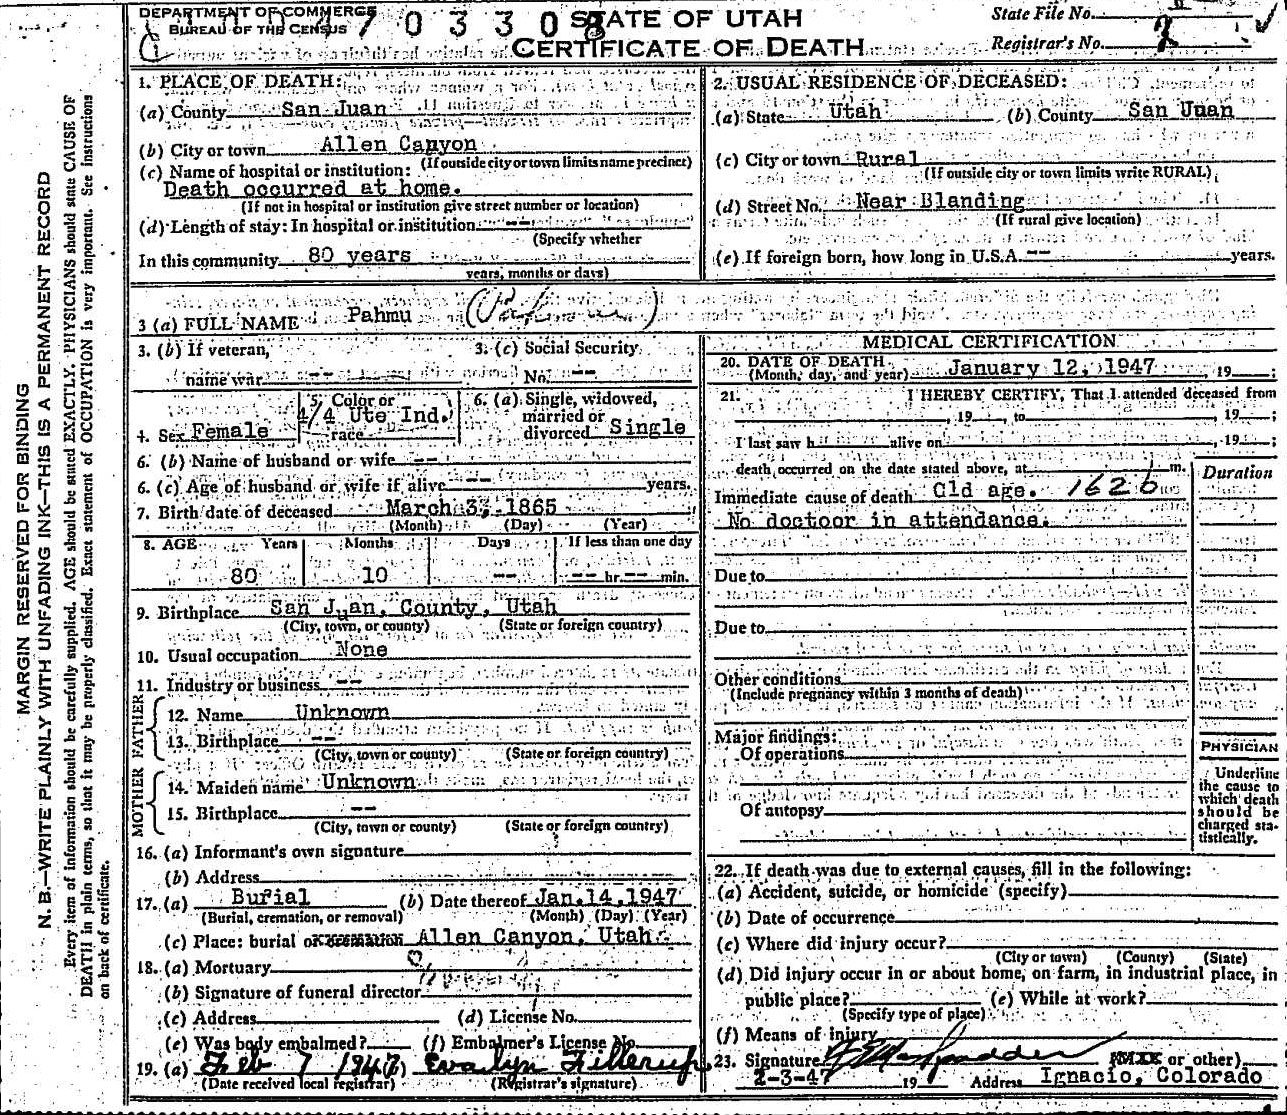 MARGIN RESERVED FOR BINDING
N. B.—WRITE PLAINLY WITH UNFADING INK—THIS IS A PERMANENT RECORD
Every item of information should be carefully supplied. AGE should be stated EXACTLY. PHYSICIANS should state CAUSE OF
DEATH in plain terms, so that it may be properly classified. Exact statement of OCCUPATION is very important. See instructions
on back of certificate.
DEPARTMENT OF COMMERCE
BUREAU OF THE CENSUS
7 0 3 3 0 8
STATE OF UTAH
CERTIFICATE OF DEATH
State File No.
Registrar's No. 2
1. PLACE OF DEATH:
(a) County San Juan
(b) City or town Allen Canyon
(If outside city or town limits name precinct)
(c) Name of hospital or institution:
Death occurred at home.
(If not in hospital or institution give street number or location)
(d) Length of stay: In hospital or institution --
(Specify whether
In this community 80 years
years, months or days)
2. USUAL RESIDENCE OF DECEASED:
(a) State Utah (b) County San Juan
(c) City or town Rural
(If outside city or town limits write RURAL)
(d) Street No. Near Blanding
(If rural give location)
(e) If foreign born, how long in U.S.A. -- years.
3 (a) FULL NAME Pahmu
3. (b) If veteran,
name war --
3. (c) Social Security
No. --
4. Sex Female
5. Color or
race 4/4 Ute Ind.
6. (a) Single, widowed,
married or
divorced Single
6. (b) Name of husband or wife --
6. (c) Age of husband or wife if alive -- years.
7. Birth date of deceased March 3, 1865
(Month) (Day) (Year)
8. AGE Years Months Days If less than one day
80 10 -- -- hr. -- min.
9. Birthplace San Juan, County, Utah
(City, town, or county) (State or foreign country)
10. Usual occupation None
11. Industry or business --
FATHER
12. Name Unknown
13. Birthplace --
(City, town or county) (State or foreign country)
MOTHER
14. Maiden name Unknown
15. Birthplace --
(City, town or county) (State or foreign country)
16. (a) Informant's own signature
(b) Address
17. (a) Burial (b) Date thereof Jan. 14, 1947
(Burial, cremation, or removal) (Month) (Day) (Year)
(c) Place: burial or cremation Allen Canyon, Utah
18. (a) Mortuary
(b) Signature of funeral director
(c) Address (d) License No.
(e) Was body embalmed? (f) Embalmer's License No.
19. (a) Feb 7 1947 (b) Evalyn Fillerup
(Date received local registrar) (Registrar's signature)
MEDICAL CERTIFICATION
20. DATE OF DEATH
(Month, day, and year) January 12, 1947, 19 ;
21. I HEREBY CERTIFY, That I attended deceased from
, 19 , to , 19 ;
I last saw h alive on , 19 ;
death occurred on the date stated above, at m.
Duration
Immediate cause of death Old age. 162b
No doctoor in attendance.
Due to
Due to
Other conditions
(Include pregnancy within 3 months of death)
Major findings:
Of operations
Of autopsy
PHYSICIAN
Underline
the cause to
which death
should be
charged sta-
tistically.
22. If death was due to external causes, fill in the following:
(a) Accident, suicide, or homicide (specify)
(b) Date of occurrence
(c) Where did injury occur?
(City or town) (County) (State)
(d) Did injury occur in or about home, on farm, in industrial place, in
public place? (e) While at work?
(Specify type of place)
(f) Means of injury
23. Signature or other)
2-3-47 19 Address Ignacio, Colorado